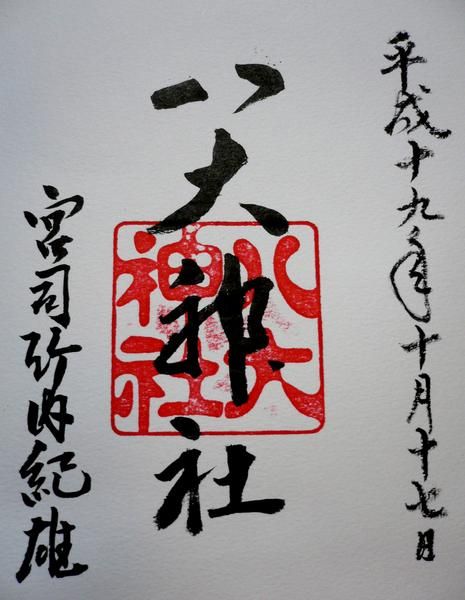 平成十九年十月十七日
八大神社
八大神社
宮司竹内紀雄